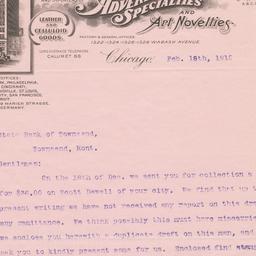 ADVERTISING
SPECIALTIES
AND
Art Novelties
LEATHER
AND
CELLULOID
GOODS.
FACTORY & GENERAL OFFICES:
1322-1324-1326-1328 WABASH AVENUE.
LONG DISTANCE TELEPHONE
CALUMET 55
Chicago, Feb. 18th, 1910
OFFICES:
PHILADELPHIA,
CINCINNATI,
ST. LOUIS,
CITY, SAN FRANCISCO,
GERMANY.
State Bank of Townsend,
Townsend, Mont.
Gentlemen:
On the 18th of Dec. we sent you for collection a
for $36.00 on Scott Dewell of your city. We find that up t
present writing we have not received any report on this dra
any remittance. We think possibly this must have miscarrie
we enclose you herewith a duplicate draft on this man, and
ask you to kindly present same for us. Enclosed find stamp